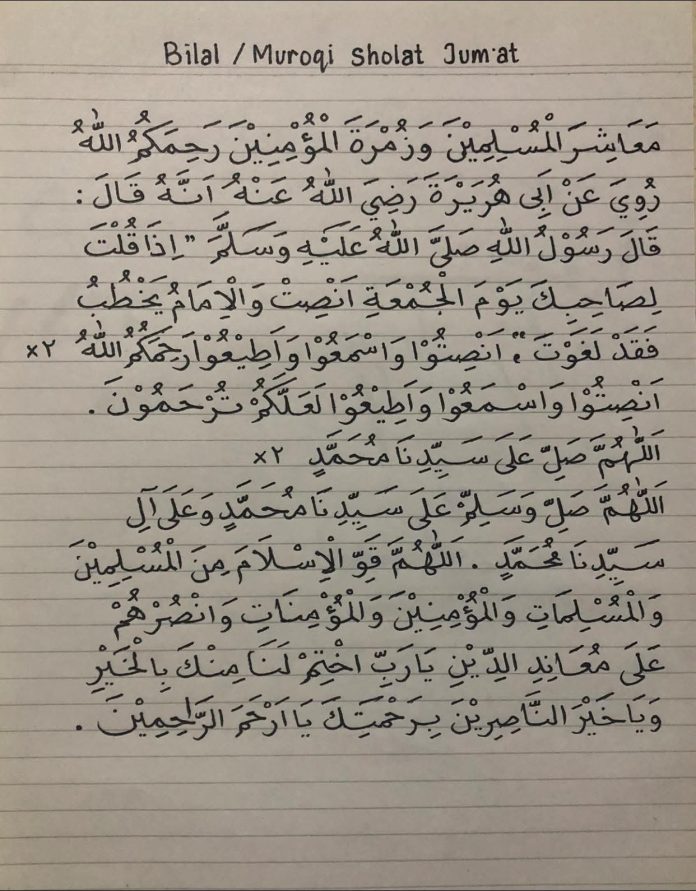 Bilal / Muroqi Sholat Jum'at
مَعَاشِرَ الْمُسْلِمِيْنَ وَزُمْرَةَ الْمُؤْمِنِيْنَ رَحِمَكُمُ اللّٰهُ
رُوِيَ عَنْ اَبِى هُرَيْرَةَ رَضِيَ اللّٰهُ عَنْهُ اَنَّهُ قَالَ :
قَالَ رَسُوْلُ اللّٰهِ صَلَّى اللّٰهُ عَلَيْهِ وَسَلَّمَ " اِذَا قُلْتَ
لِصَاحِبِكَ يَوْمَ الْجُمْعَةِ اَنْصِتْ وَالْاِمَامُ يَخْطُبُ
فَقَدْ لَغَوْتَ " اَنْصِتُوْا وَاسْمَعُوْا وَاَطِيْعُوْا رَحِمَكُمُ اللّٰهُ ×٢
اَنْصِتُوْا وَاسْمَعُوْا وَاَطِيْعُوْا لَعَلَّكُمْ تُرْحَمُوْنَ .
اَللّٰهُمَّ صَلِّ عَلَى سَيِّدِنَا مُحَمَّدٍ ×٢
اَللّٰهُمَّ صَلِّ وَسَلِّمْ عَلَى سَيِّدِنَا مُحَمَّدٍ وَعَلَى آلِ
سَيِّدِنَا مُحَمَّدٍ . اَللّٰهُمَّ قَوِّ الْاِسْلَامَ مِنَ الْمُسْلِمِيْنَ
وَالْمُسْلِمَاتِ وَالْمُؤْمِنِيْنَ وَالْمُؤْمِنَاتِ وَانْصُرْهُمْ
عَلَى مُعَانِدِ الدِّيْنِ يَارَبِّ اخْتِمْ لَنَا مِنْكَ بِالْخَيْرِ
وَيَاخَيْرَ النَّاصِرِيْنَ بِرَحْمَتِكَ يَا اَرْحَمَ الرَّاحِمِيْنَ .